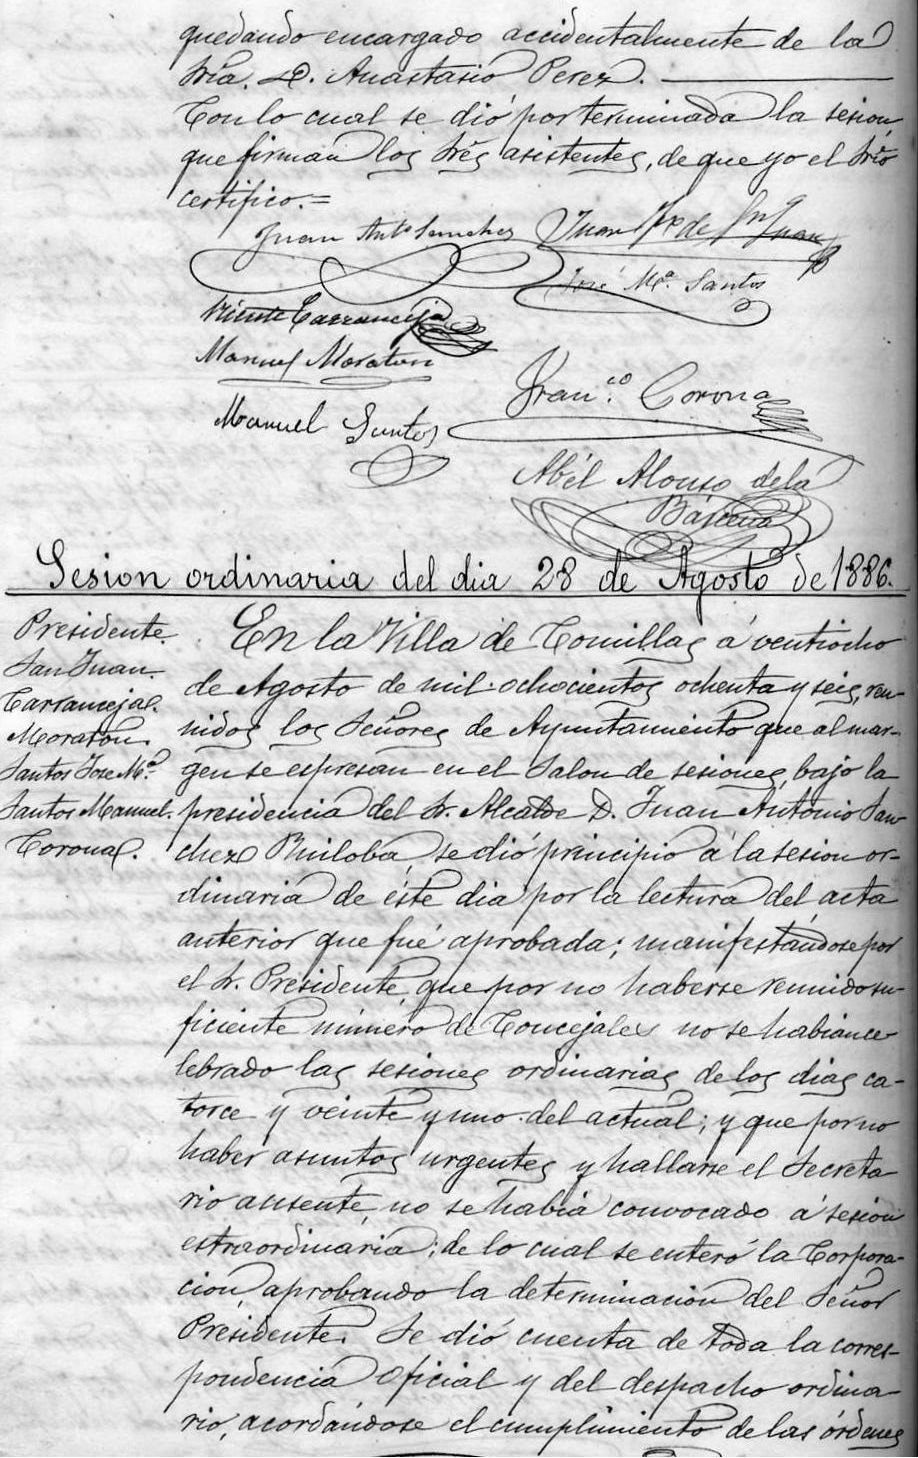 quedando encargado accidentalmente de la
Sría. D. Anastasio Perez.
Con lo cual se dió por terminada la sesion
que firman los Srēs asistentes, de que yo el Srio
certifico.=
Juan Anto Sanchez
Juan de San Juan
José Ma. Santos
Vicente Carranceja
Manuel Moraton
Franco. Corona
Manuel Santos
Abél Alonso de la
Bárcena
Sesion ordinaria del dia 28 de Agosto de 1886.
Presidente.
San Juan.
Carranceja.
Moratón.
Santos Jose Ma.
Santos Manuel.
Corona.
En la Villa de Comillas á ventiocho
de Agosto de mil ochocientos ochenta y seis, reu-
nidos los Señores de Ayuntamiento que al mar-
gen se espresan en el Salon de sesiones, bajo la
presidencia del Sr. Alcalde D. Juan Antonio San
chez Ruiloba, se dió principio á la sesion or-
dinaria de éste dia por la lectura del acta
anterior que fué aprobada; manifestándose por
el Sr. Presidente, que por no haberse reunido su-
ficiente número de Concejales no se habian ce-
lebrado las sesiones ordinarias de los dias ca-
torce y veinte y uno del actual; y que por no
haber asuntos urgentes y hallarse el Secreta-
rio ausente, no se habia convocado á sesion
estraordinaria; de lo cual se enteró la Corpora-
cion aprobando la determinacion del Señor
Presidente. Se dió cuenta de toda la corres-
pondencia oficial y del despacho ordina-
rio, acordándose el cumplimiento de las órdenes